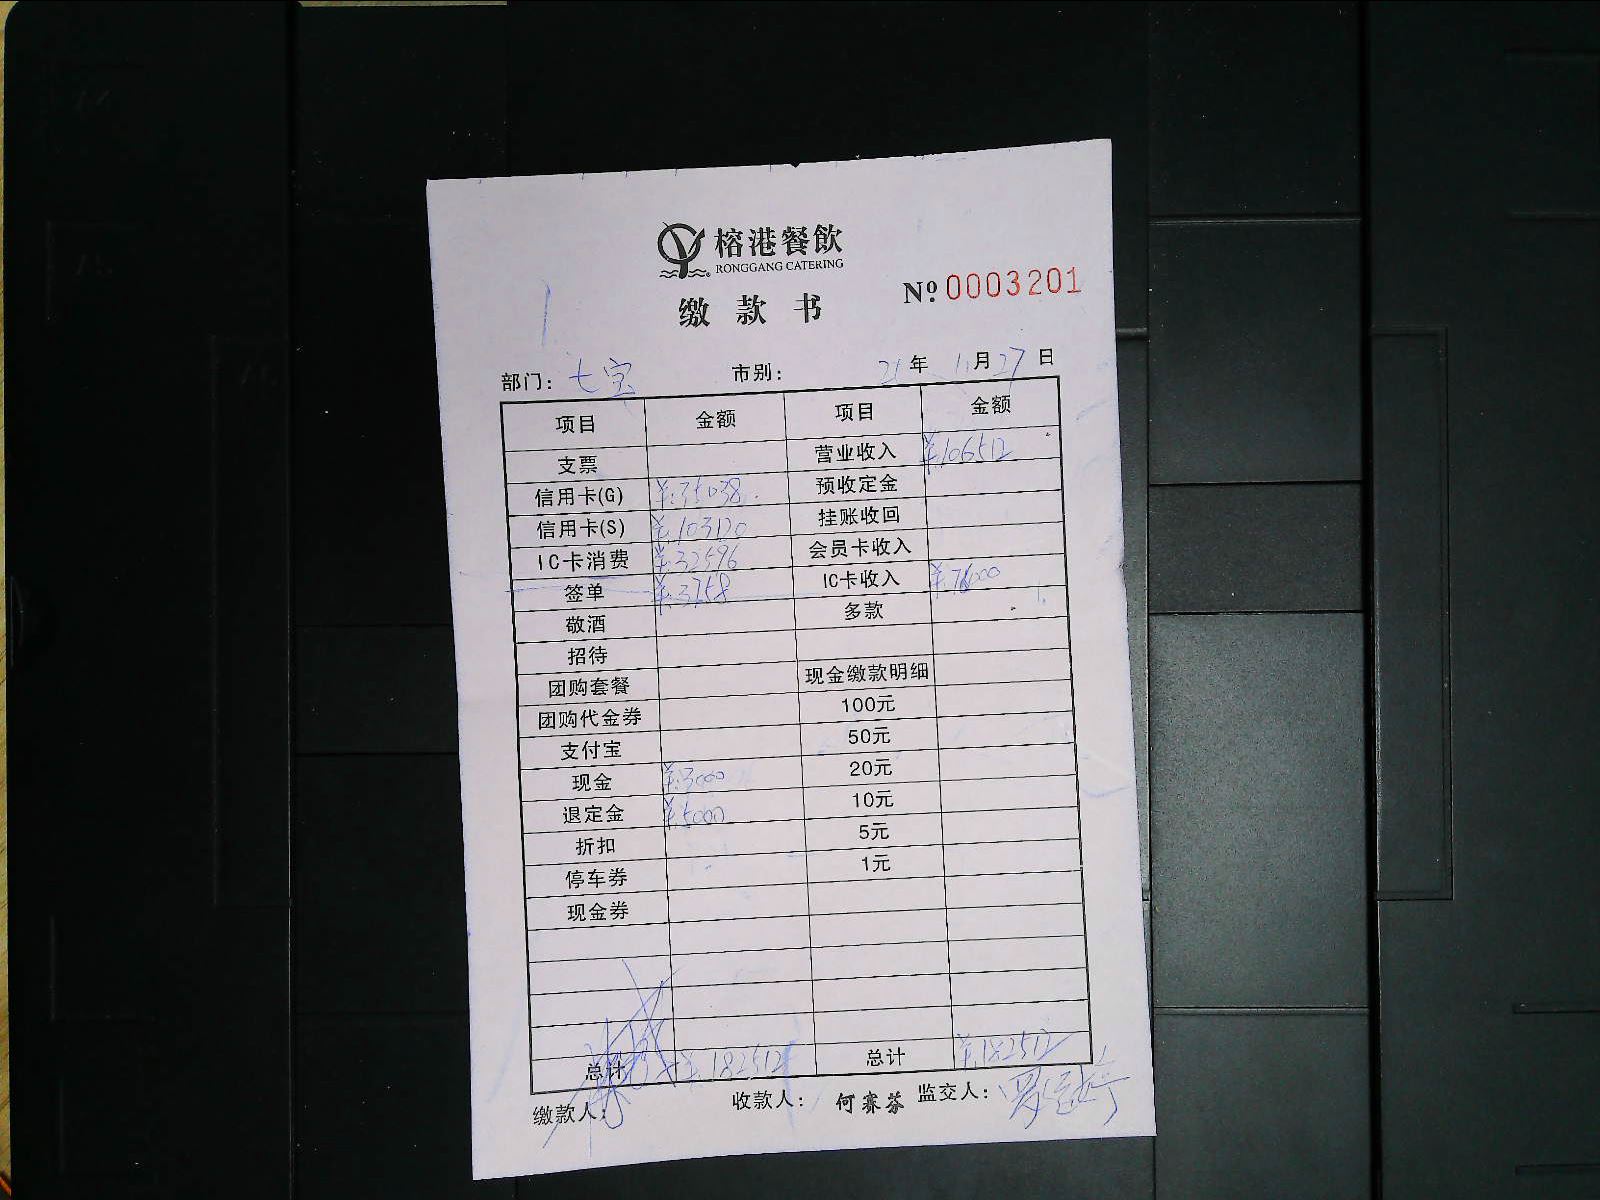 榕港餐飲
RONGGANG CATERING
缴款书
Nº 0003201
部门: 七宝 市别: 21年 11月27日
项目 金额 项目 金额
支票 营业收入 ¥:106512
信用卡(G) ¥:35038. 预收定金
信用卡(S) ¥:103120 挂账收回
IC卡消费 ¥:32596 会员卡收入
签单 ¥:3758 IC卡收入 ¥:76000
敬酒 多款
招待
团购套餐 现金缴款明细
团购代金券 100元
支付宝 50元
现金 ¥:3000 20元
退定金 ¥:5000 10元
折扣 5元
停车券 1元
现金券
总计 ¥:182512 总计 ¥:182512
缴款人: 收款人: 何赛芬 监交人: